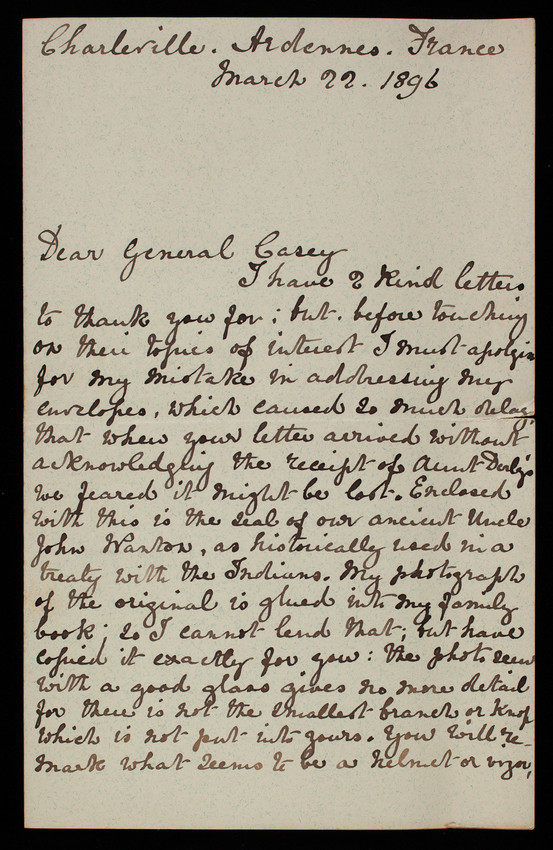 Charleville. Ardennes. France
March 22. 1896
Dear General Casey
I have 2 kind letters
to thank you for; but before touching
on their topics of interest I must apologize
for my mistake in addressing my
envelopes, which caused so much delay
that when your letter arrived without
acknowledging the receipt of Aunt Derby's
we feared it might be lost. Enclosed
with this is the seal of our ancient Uncle
John Wanton, as historically used in a
treaty with the Indians. My photograph
of the original is glued into my family
book; so I cannot lend that; but have
copied it exactly for you: the photo seen
with a good glass gives no more detail
for there is not the smallest branch or knop
which is not put into yours. You will re-
mark what seems to be a helmet or vizor,